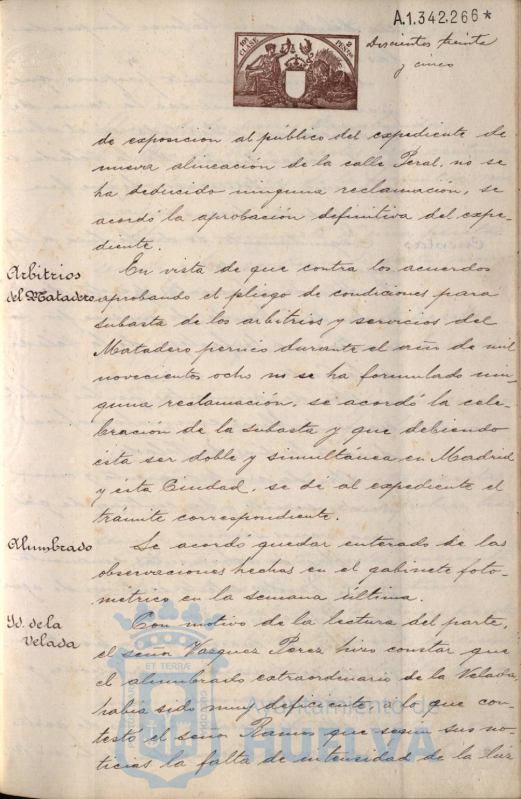 A.1.342.266*
10ª CLASE
2 PESETAS
Doscientos treinta
y cinco
de exposición al público del expediente de
nueva alineación de la calle Peral, no se
ha deducido ninguna reclamación, se
acordó la aprobación definitiva del expe-
diente.
Arbitrios
del Matadero
En vista de que contra los acuerdos
aprobando el pliego de condiciones para
subasta de los arbitrios y servicios del
Matadero pernio durante el año de mil
novecientos ocho no se ha formulado nin-
guna reclamación, se acordó la cele-
bración de la subasta y que debiendo
ésta ser doble y simultánea en Madrid
y esta Ciudad, se dé al expediente el
trámite correspondiente.
Alumbrado
Se acordó quedar enterado de las
observaciones hechas en el gabinete foto-
métrico en la semana última.
Id. de la
Velada
Con motivo de la lectura del parte,
el señor Vazquez Perez hizo constar que
el alumbrado extraordinario de la Velada
había sido muy deficiente, a lo que con-
testó el señor Ramos que según sus no-
ticias la falta de intensidad de la luz
Ayuntamiento de
HUELVA